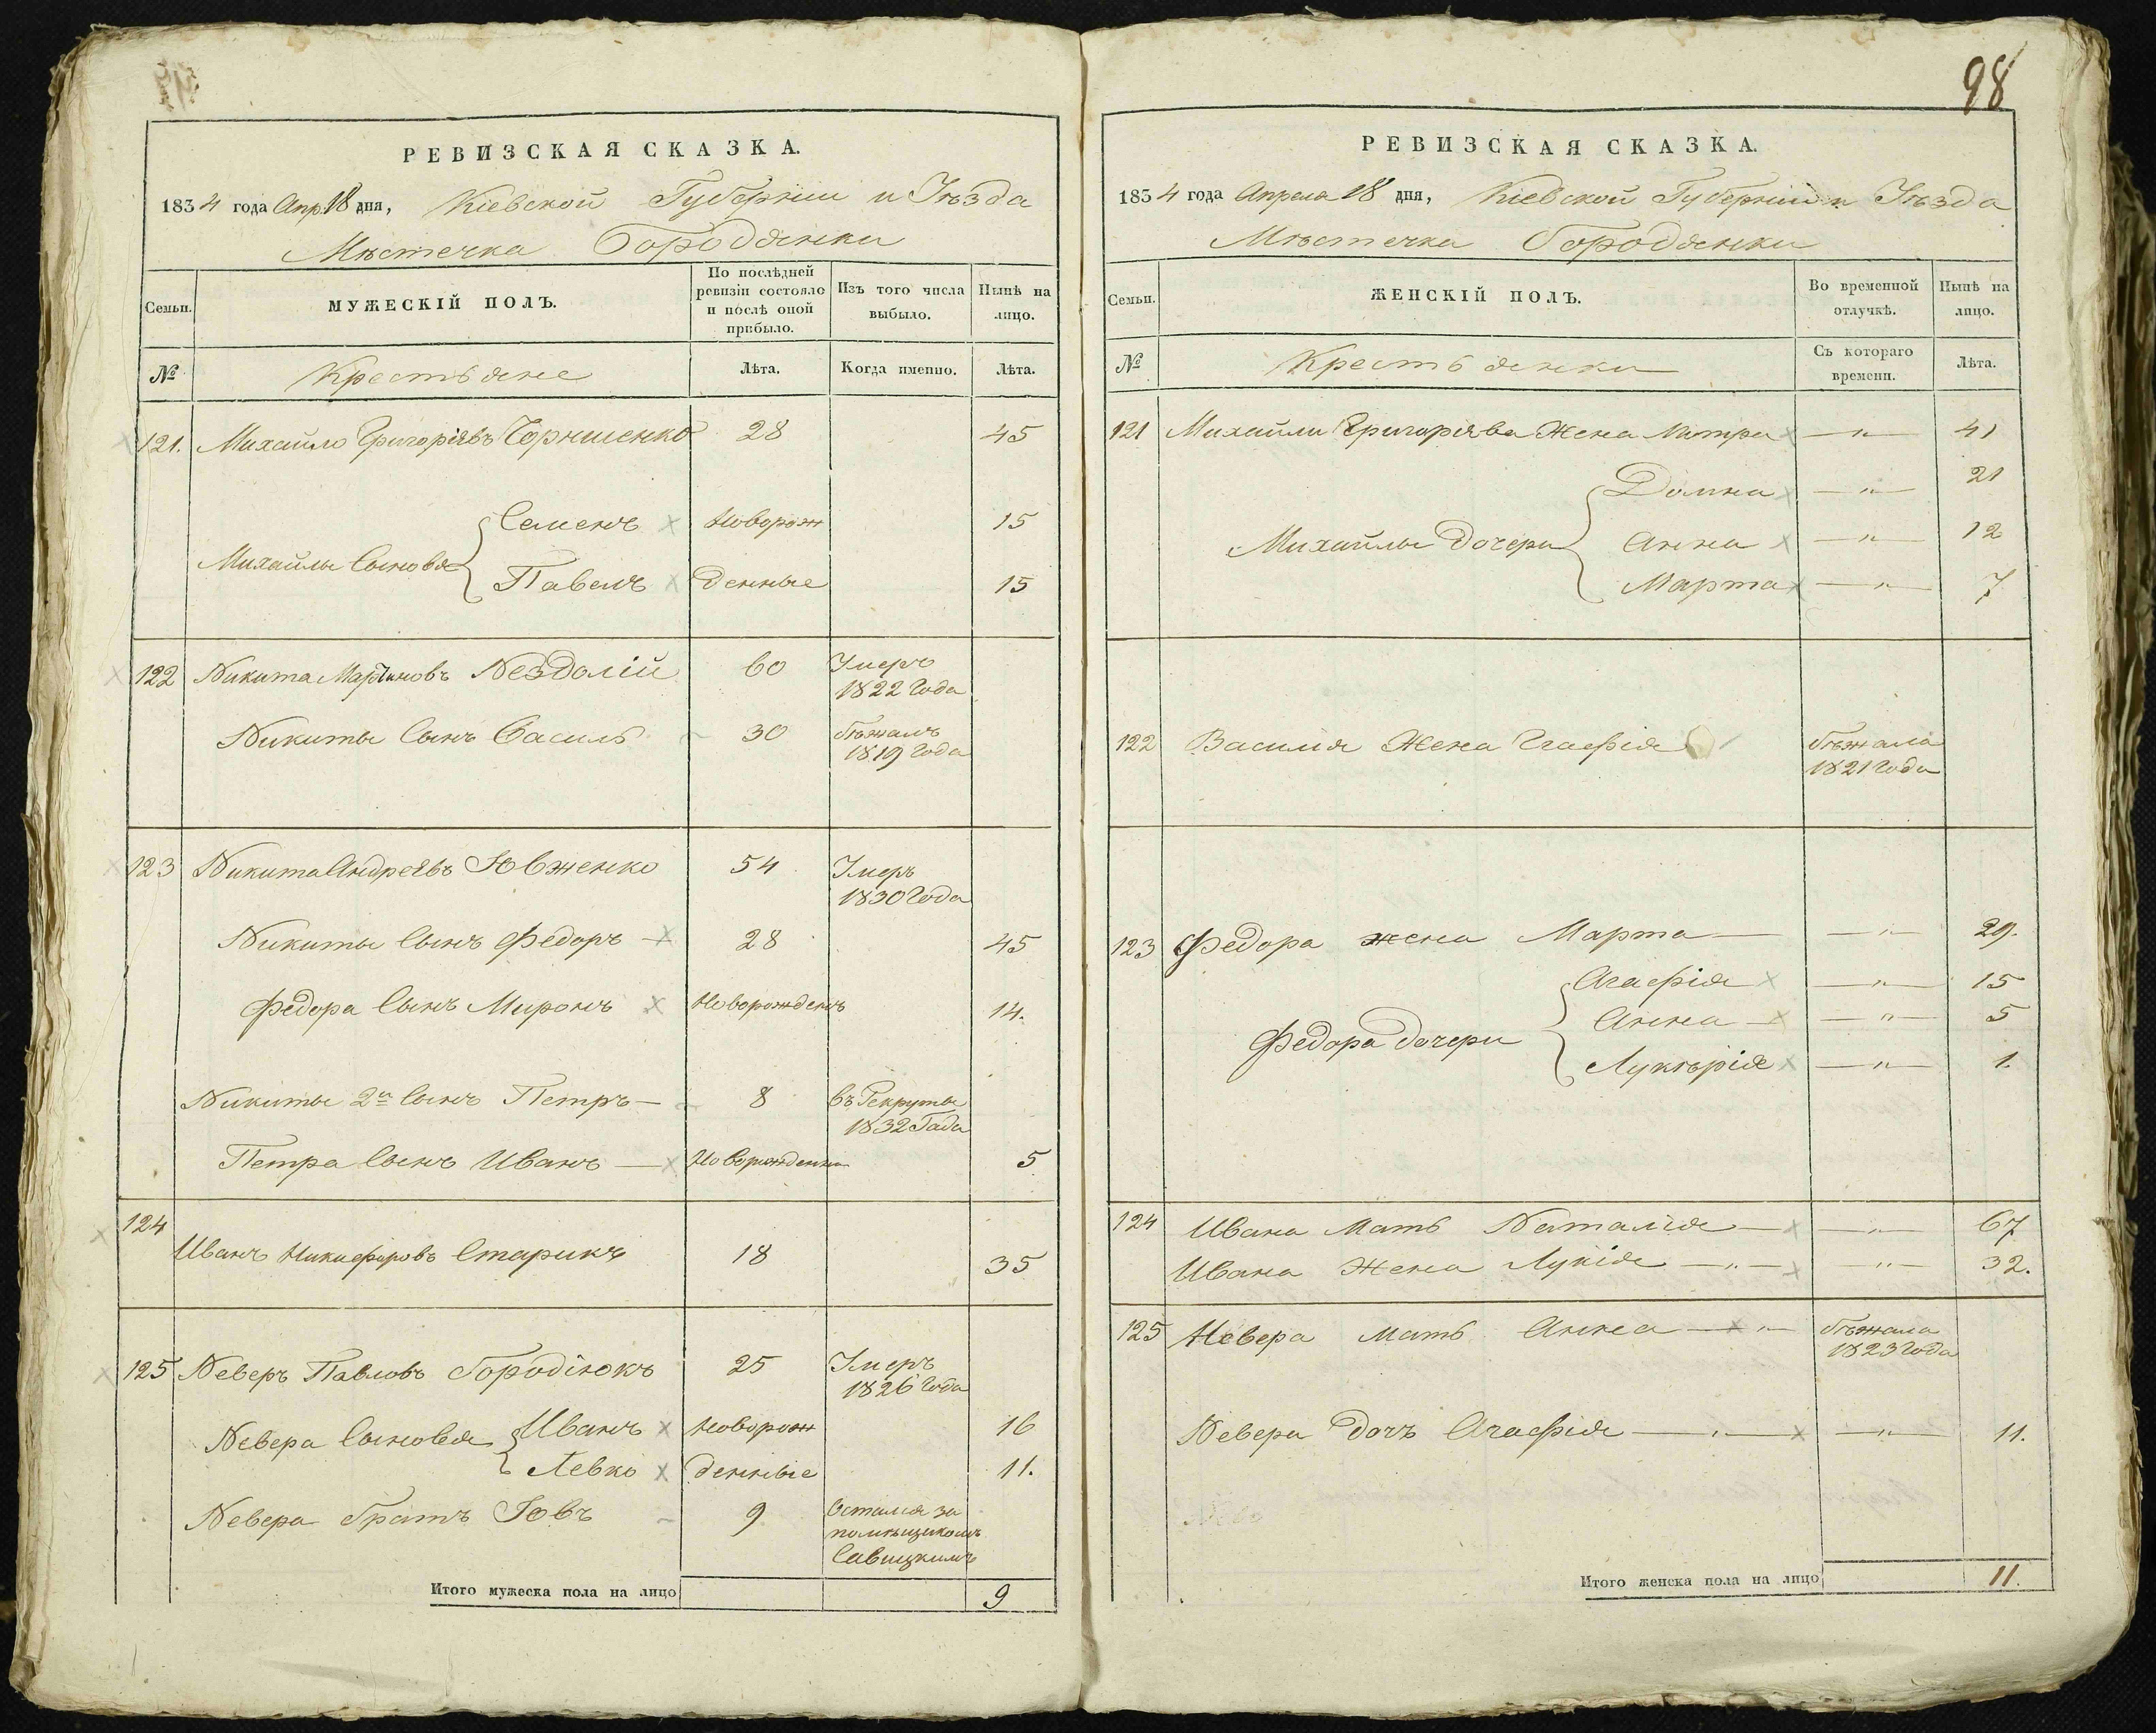 РЕВИЗСКАЯ СКАЗКА.
1834 года Апр. 18 дня, Кіевской Губерніи и Уѣзда
Мѣстечка Бородянки
Семьи.
МУЖЕСКІЙ ПОЛЪ.
По послѣдней ревизіи состояло и послѣ оной прибыло.
Изъ того числа выбыло.
Нынѣ на лицо.
№
Крестьяне
Лѣта.
Когда именно.
Лѣта.
121. Михайло Григоріевъ Чорнишенко 28 45
Семенъ Новорож 15
Михайлы Сыновья
Павелъ денные 15
122 Никита Мартиновъ Нездолій 60 Умеръ 1822 Года
Никиты Сынъ Василь 30 бѣжалъ 1819 Года
123 Никита Андреевъ Ювженко 54 Умеръ 1830 Года
Никиты Сынъ Федоръ 28 45
Федора Сынъ Миронъ Новорожденъ 14.
Никиты 2й Сынъ Петръ 8 въ Рекруты 1832 Года
Петра Сынъ Иванъ Новорожденны 5
124
Иванъ Никифоровъ Старикъ 18 35
125 Неверъ Павловъ Бородінокъ 25 Умеръ 1826 Года
Невера Сыновья Иванъ Новорож 16
Левко денные 11.
Невера братъ Іовъ 9 Остался за помѣщикомъ Савицкимъ
Итого мужеска пола на лицо 9
98
РЕВИЗСКАЯ СКАЗКА.
1834 года Апреля 18 дня, Кіевской Губерніи и Уѣзда
Мѣстечка Бородянки
Семьи.
ЖЕНСКІЙ ПОЛЪ.
Во временной отлучкѣ.
Нынѣ на лицо.
№
Крестьянки
Съ котораго времени.
Лѣта.
121 Михайли Григорієва Жена Мотра — „ — 41
Домна — „ — 21
Михайлы дочери Анна — „ — 12
Марта — „ — 7
122 Василія Жена Агафія бѣжала 1821 Года
123 Федора жена Марта — „ — 29.
Агафія — „ — 15
Анна — „ — 5
Федора дочери
Лукѣрія — „ — 1.
124 Ивана Мать Наталія — „ — 67
Ивана Жена Лукія — „ — 32.
125 Невера Мать Анна — „ бѣжала 1823 Года
Невера дочъ Агафія — „ — 11.
Итого женска пола на лицо 11.